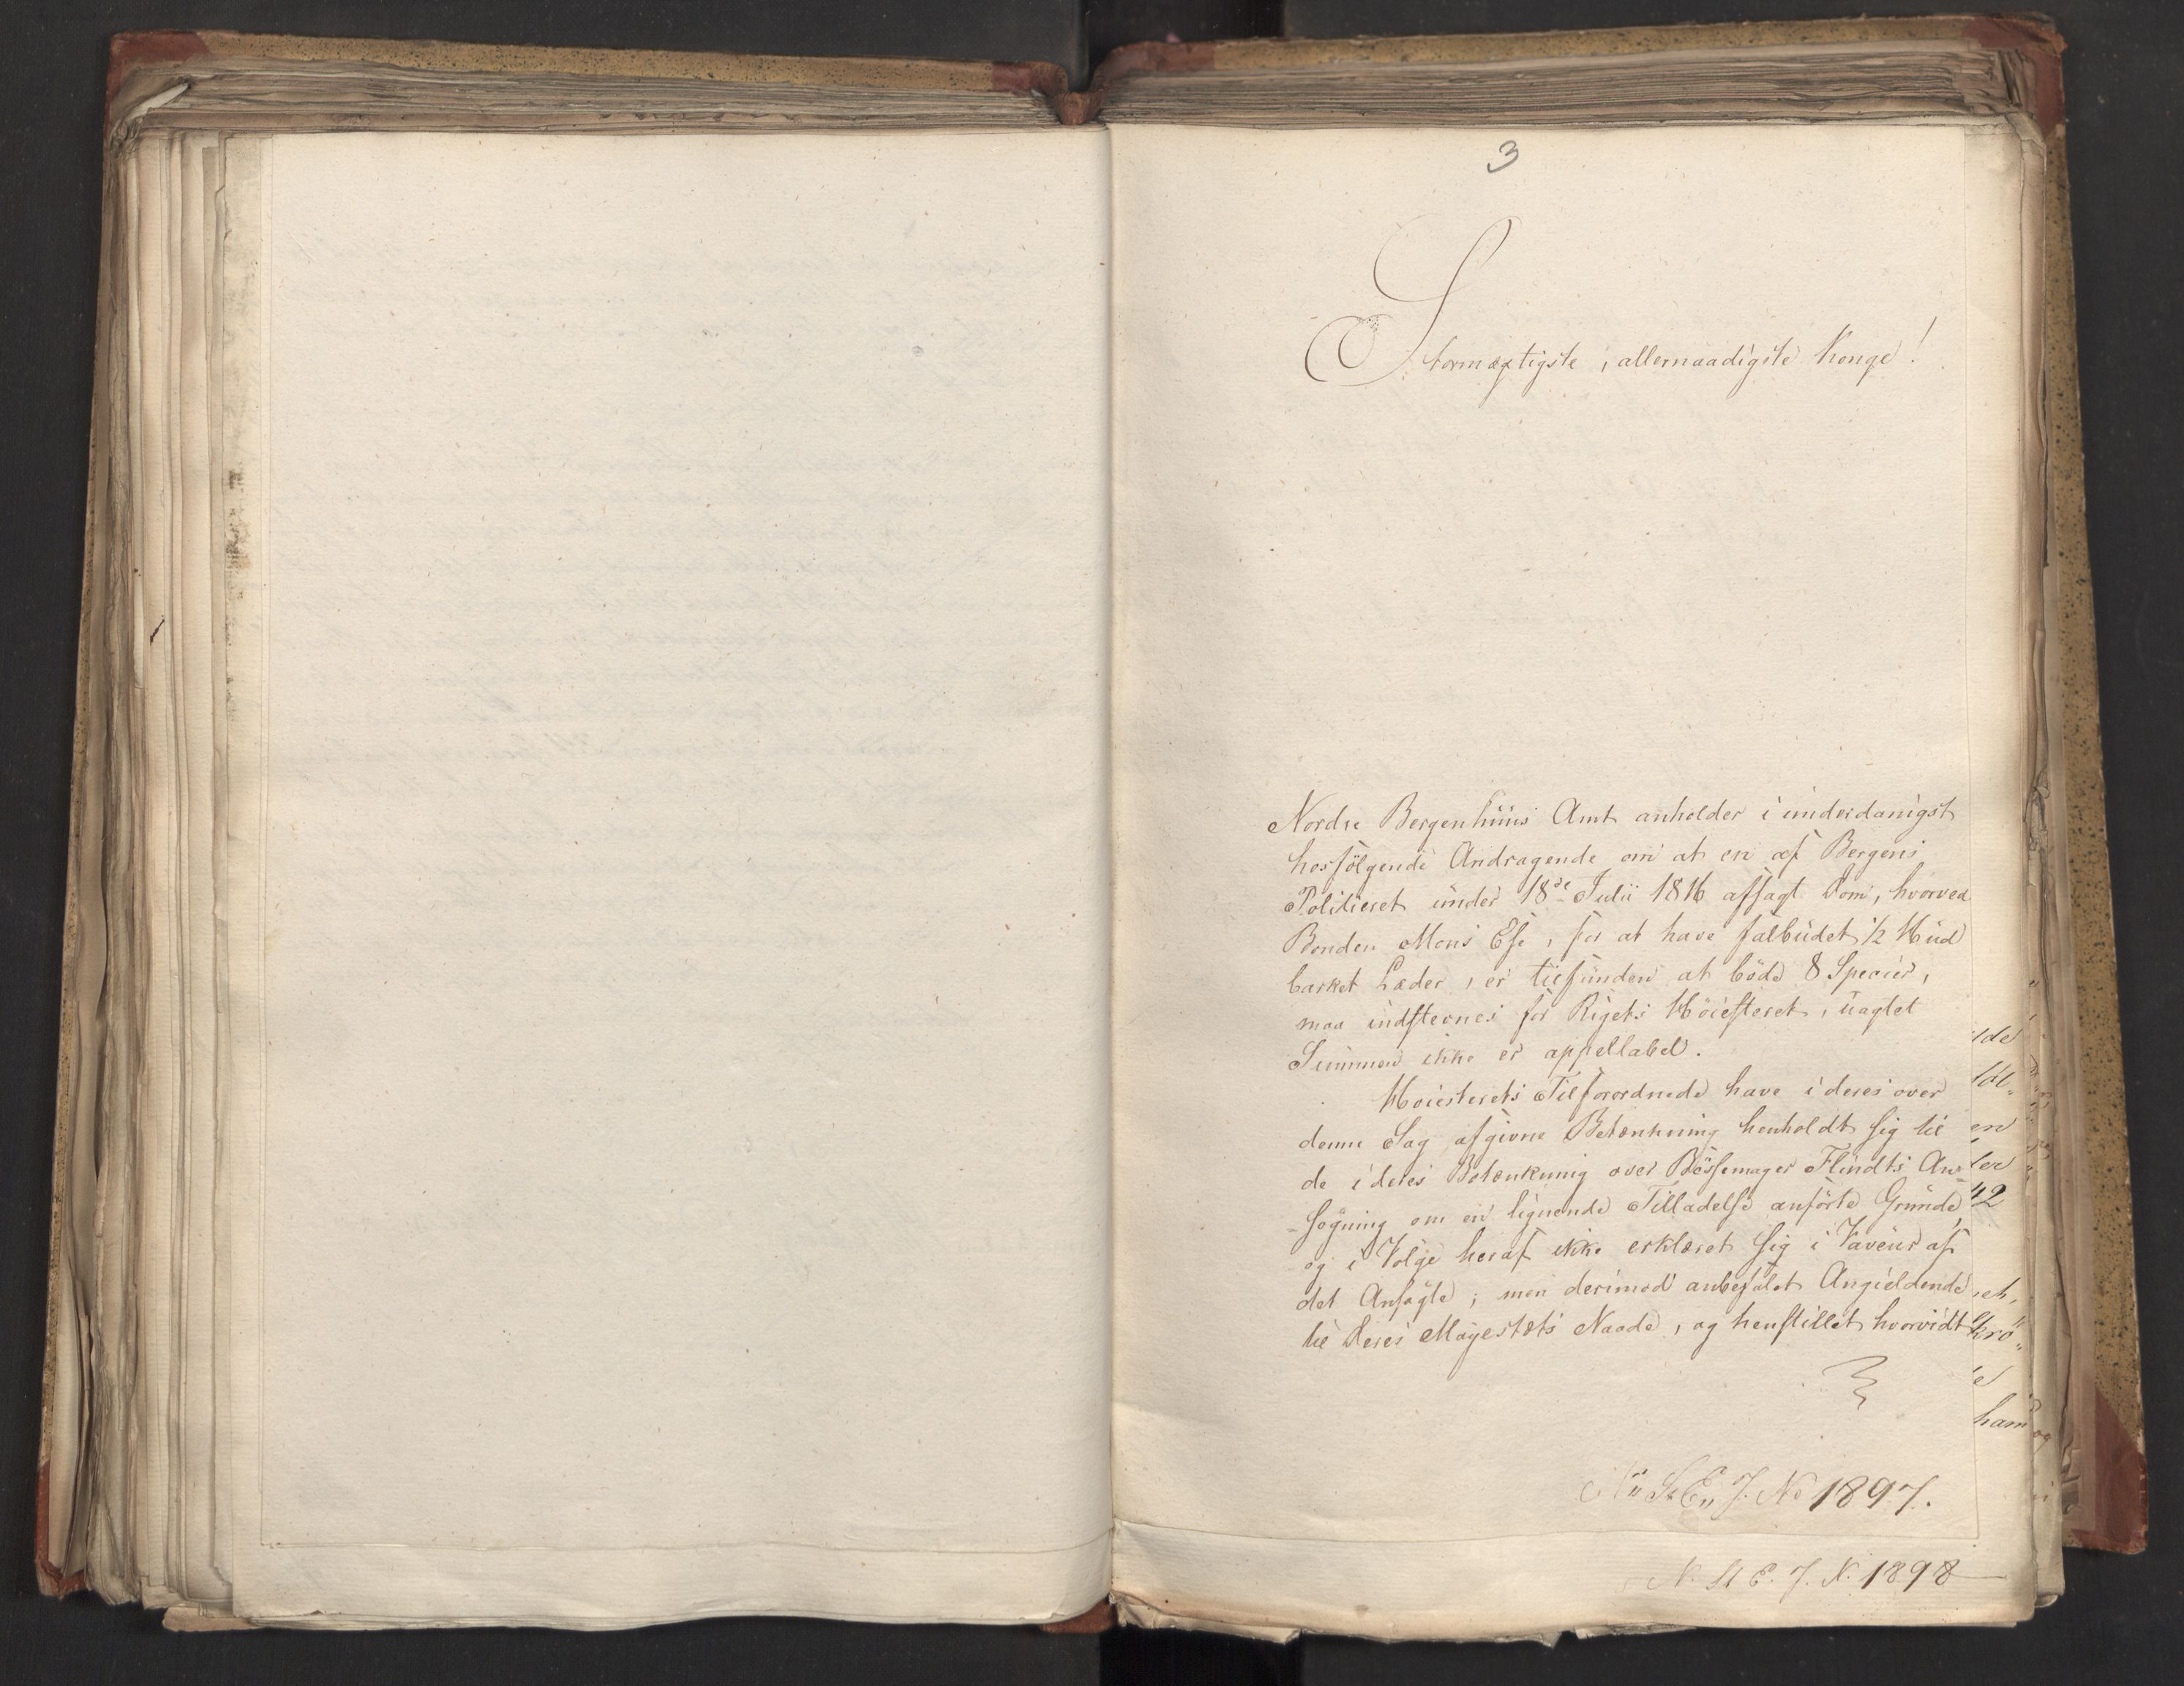 3
Stormægtigste, allernaadigste Konge!
Nordre Bergenhuus Amt anholder i underdanigst
hosfölgende Andragende om at en af Bergens
Politieret under 18de Julii 1816 afsagt Dom, hvorved
Bonden Mons Ese, for at have falbudet 1/2 Hud
barket Læder, er tilfunden at böde 8 Specier,
maa indstevnes for Rigets Höiesteret, uagtet
Summen ikke er appellabel.
Höiesterets Tilforordnede have i deres over
denne Sag afgivne Betænkning henholdt sig til
de i deres Betænkning over Bössemager Flindts An-
sögning om en lignende Tilladelse anförte Grunde,
og i Fölge heraf ikke erklæret sig i Faveur af
det Ansögte; men derimod anbefalet Angieldende
til Deres Majestæts Naade, og henstillet hvorvidt
N. St. E. J. No 1897.
N. St. E. J. N. 1898
ilde
töl-
en
ler
42
et,
krö-
ham